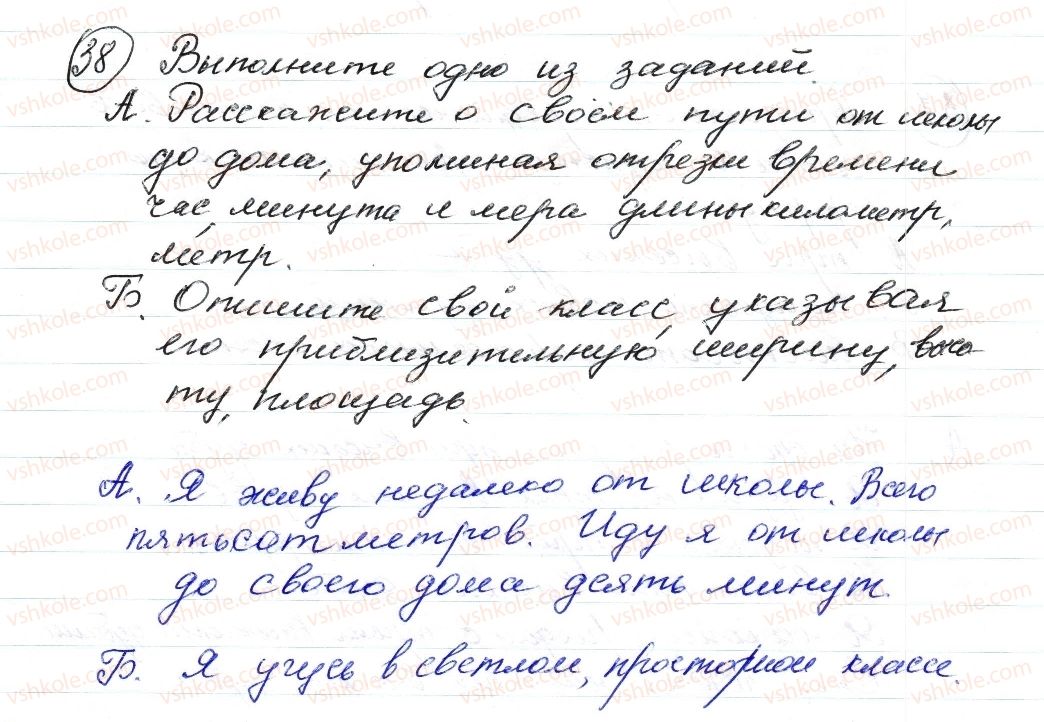 38 Выполните одно из заданий.
А. Расскажите о своём пути от школы
до дома, упоминая отрезки времени
час, минута и мера длины километр,
метр.
Б. Опишите свой класс, указывая
его приблизительную ширину, высо-
ту, площадь.
А. Я живу недалеко от школы. Всего
пятьсот метров. Иду я от школы
до своего дома десять минут.
Б. Я учусь в светлом, просторном классе.